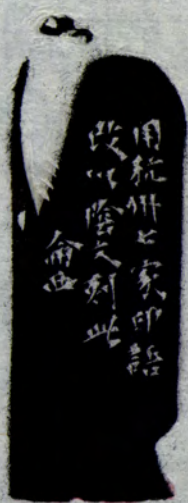 用杭州七家印譜
改以陰文刻此
侖西